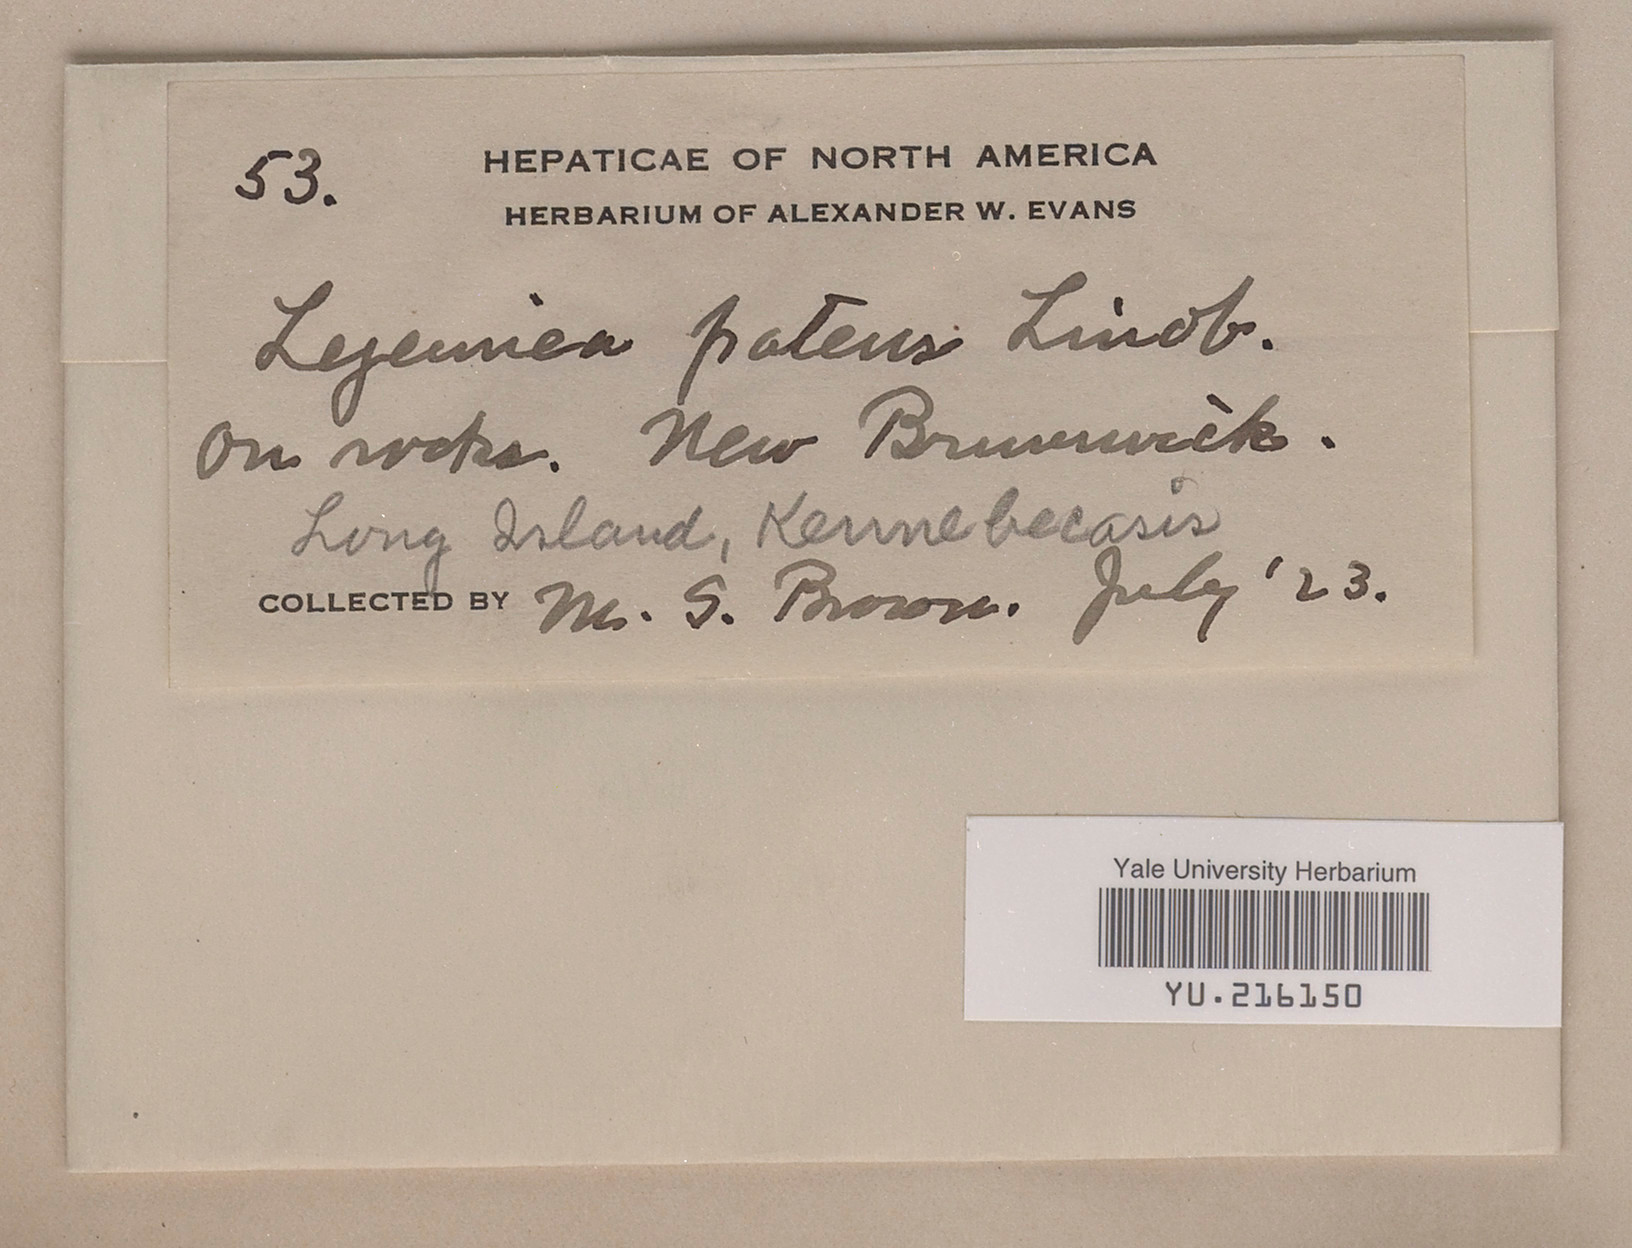 53.
HEPATICAE OF NORTH AMERICA
HERBARIUM OF ALEXANDER W. EVANS
Lejeunea patens Lindb.
On rocks. New Brunswick.
Long Island, Kennebecasis
COLLECTED BY M. S. Brown. July '23.
Yale University Herbarium
YU.216150